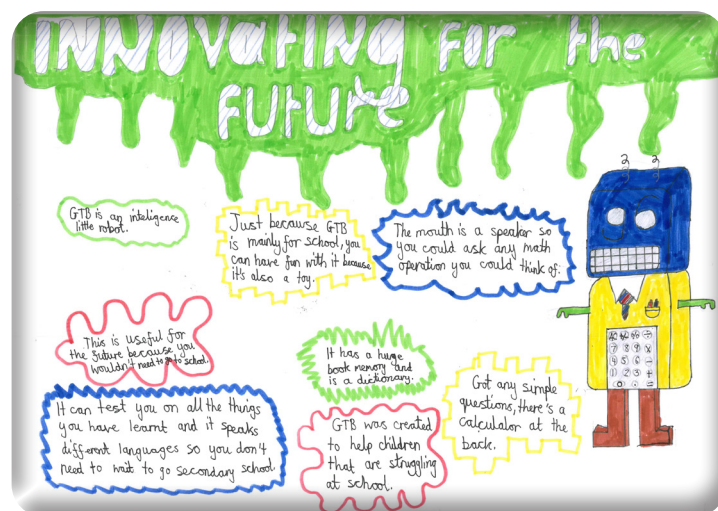 INNOVating for the
FUTURE
GTB is an inteligence
little robot.
Just because GTB
is mainly for school, you
can have fun with it because
it's also a toy.
The mouth is a speaker so
you could ask any math
operation you could think of.
This is useful for
the future because you
wouldn't need to go to school.
It has a huge
book memory and
is a dictionary.
Got any simple
questions, there's a
calculator at the
back.
It can test you on all the things
you have learnt and it speaks
different languages so you don't
need to wait to go secondary school
GTB was created
to help children
that are struggling
at school.